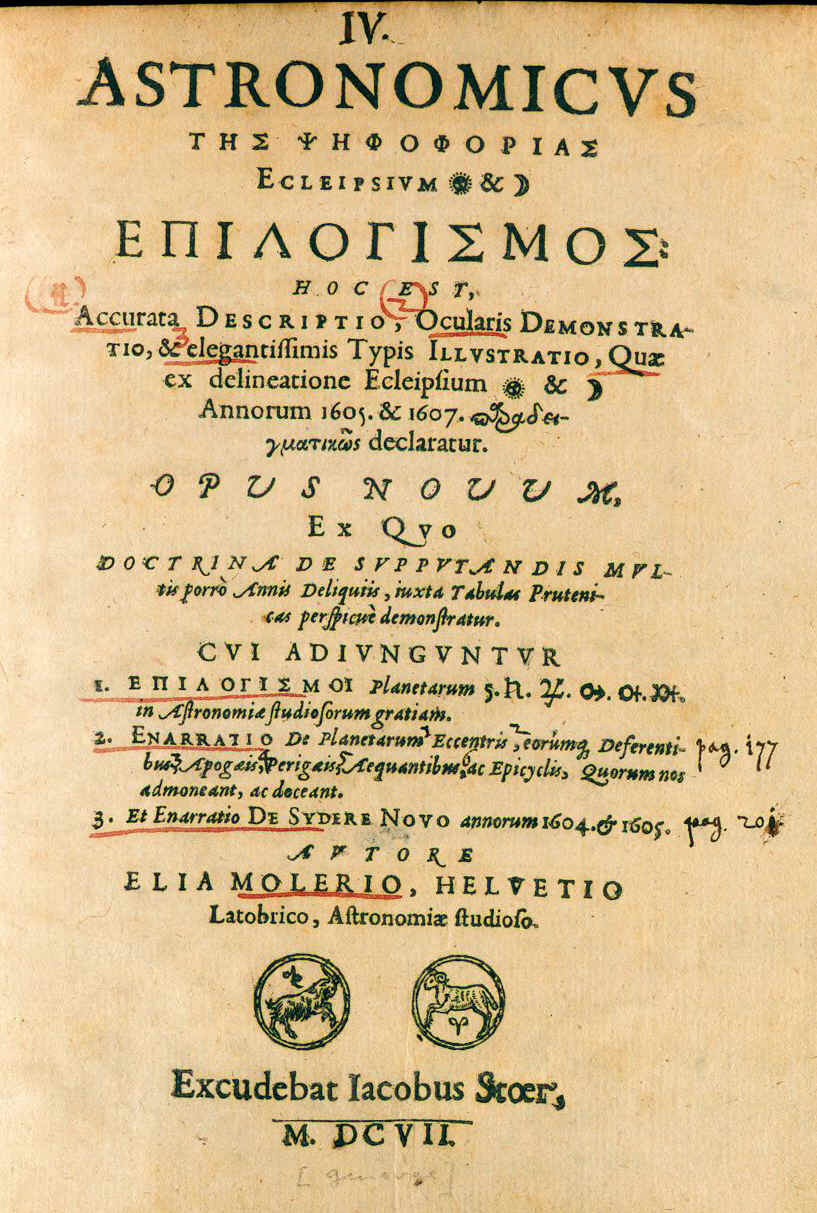 IV.
ASTRONOMICVS
ΤΗΣ ΨΗΦΟΦΟΡΙΑΣ
ECLEIPSIVM ☉ & ☽
ΕΠΙΛΟΓΙΣΜΟΣ:
HOC EST,
Accurata DESCRIPTIO, Ocularis DEMONSTRA-
TIO, & elegantiſſimis Typis ILLVSTRATIO, Quæ
ex delineatione Ecleipſium ☉ & ☽
Annorum 1605. & 1607. παραδει-
γματικῶς declaratur.
OPUS NOUUM,
EX QVO
DOCTRINA DE SVPPVTANDIS MVL-
tis porrò Annis Deliquiis, iuxta Tabulas Pruteni-
cas perſpicuè demonſtratur.
CVI ADIVNGVNTVR
1. ΕΠΙΛΟΓΙΣΜΟΙ Planetarum 5. ♄. ♃. ♂. ♀. ☿.
in Aſtronomiæ ſtudioſorum gratiam.
2. ENARRATIO De Planetarum Eccentris, eorumq́ Deferenti- pag. 177
bus, Apogæis, Perigæis, Æquantibus, ac Epicyclis, Quorum nos
admoneant, ac doceant.
3. Et Enarratio DE SYDERE NOVO annorum 1604. & 1605. pag. 201
AVTORE
ELIA MOLERIO, HELVETIO
Latobrico, Aſtronomiæ ſtudioſo.
Excudebat Iacobus Stoer,
M. DCVII.